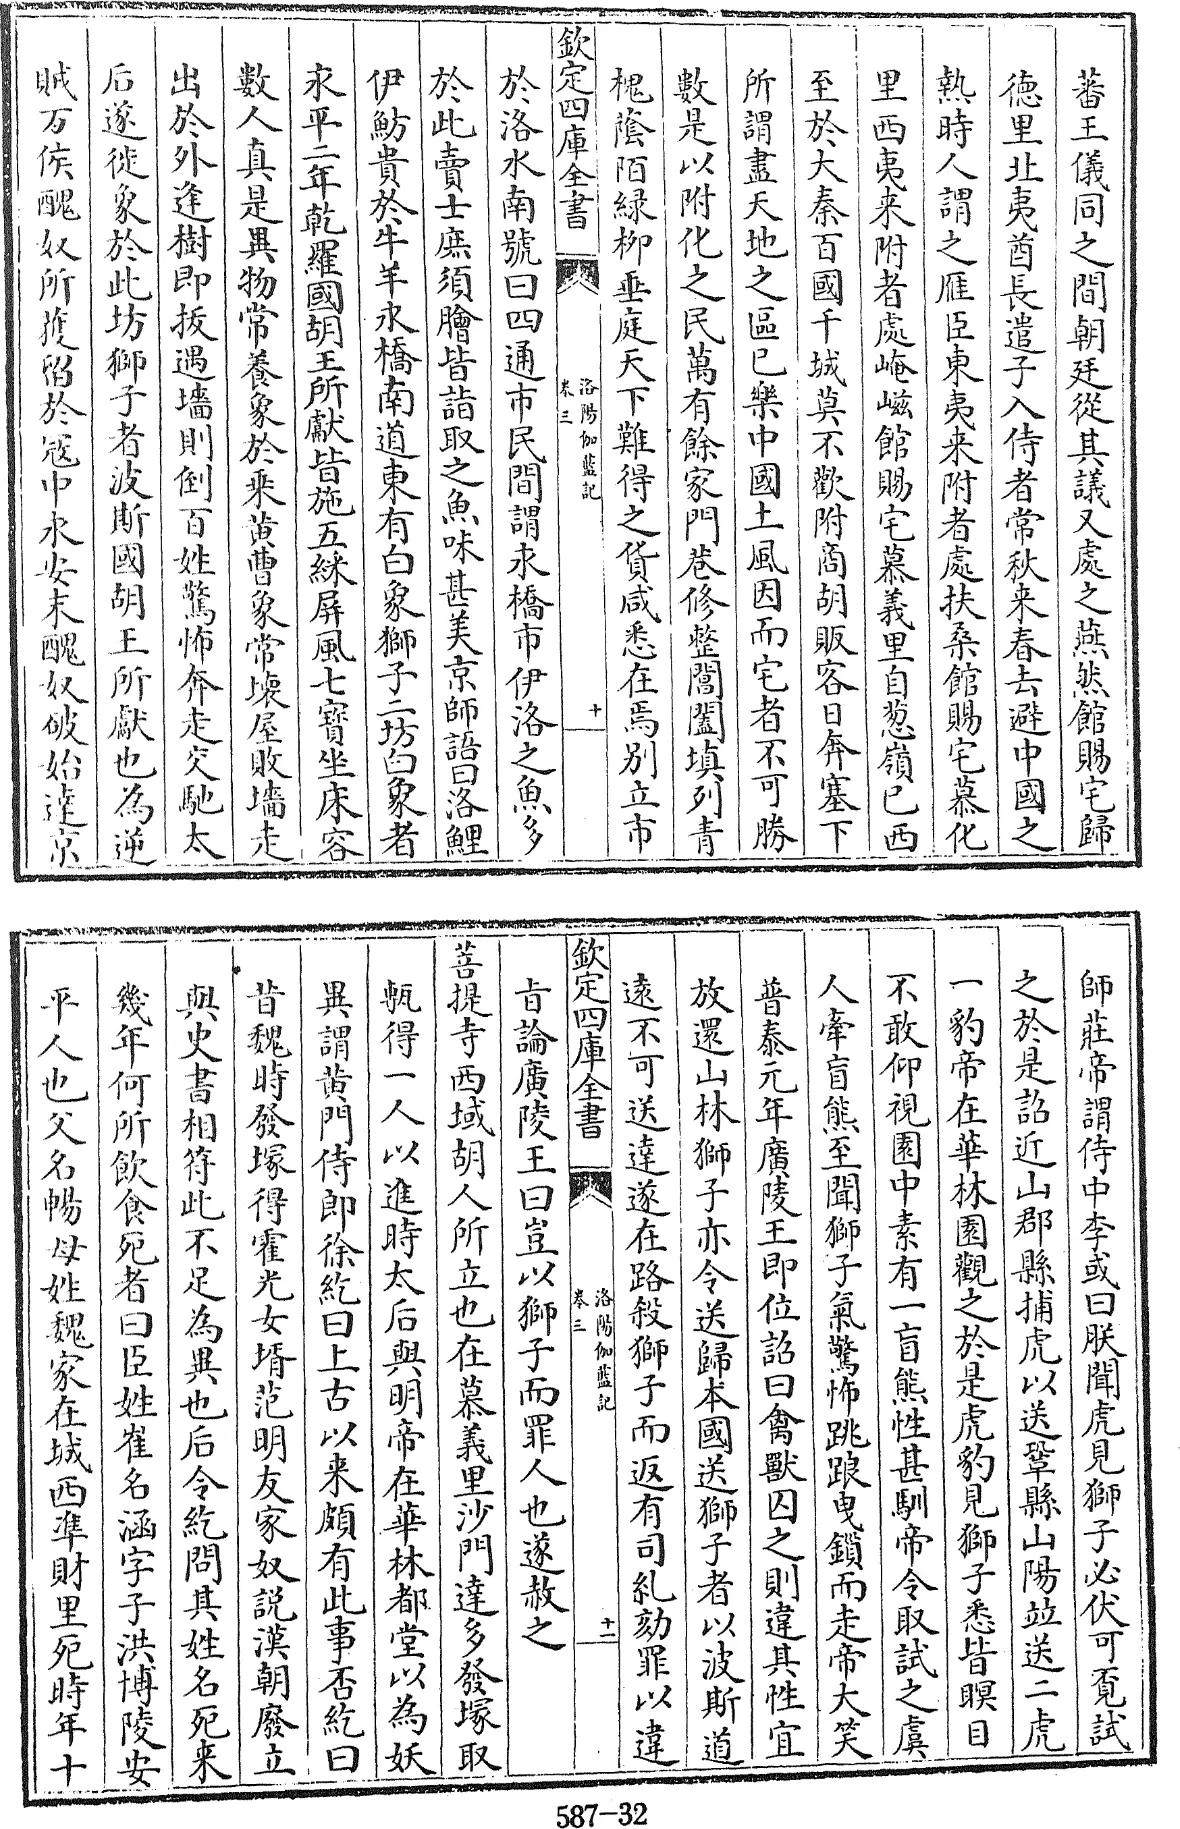 蕃王儀同之間朝廷從其議又處之燕然館賜宅歸
徳里北夷酋長遣子入侍者常秋来春去避中國之
熱時人謂之雁臣東夷来附者處扶桑館賜宅慕化
里西夷来附者處崦嵫館賜宅慕義里自葱嶺已西
至於大秦百國千城莫不歡附商胡販客日奔塞下
所謂盡天地之區已樂中國土風因而宅者不可勝
數是以附化之民萬有餘家門巷修整閶闔填列青
槐蔭陌緑栁垂庭天下難得之貨咸悉在焉别立市
欽定四庫全書
洛陽伽藍記
卷三
十
於洛水南號曰四通市民間謂永橋市伊洛之魚多
於此賣士庶須膾皆詣取之魚味甚美京師語曰洛鯉
伊魴貴於牛羊永橋南道東有白象獅子二坊白象者
永平二年乾羅國胡王所獻皆施五綵屏風七寳坐床容
數人真是異物常養象於乘黄曹象常壊屋敗墻走
出於外逢樹即拔遇墻則倒百姓驚怖奔走交馳太
后遂徙象於此坊獅子者波斯國胡王所獻也為逆
賊万俟醜奴所獲留於寇中永安末醜奴破始達京
師莊帝謂侍中李或曰朕聞虎見獅子必伏可覔試
之於是詔近山郡縣捕虎以送鞏縣山陽竝送二虎
一豹帝在華林園觀之於是虎豹見獅子悉皆瞑目
不敢仰視園中素有一盲熊性甚馴帝令取試之虞
人牽盲熊至聞獅子氣驚怖跳踉曳鎖而走帝大笑
普泰元年廣陵王即位詔曰禽獸囚之則違其性宜
放還山林獅子亦令送歸本國送獅子者以波斯道
遠不可送達遂在路殺獅子而返有司糺劾罪以違
欽定四庫全書
洛陽伽藍記
卷三
十一
旨論廣陵王曰豈以獅子而罪人也遂赦之
菩提寺西域胡人所立也在慕義里沙門達多發塚取
甎得一人以進時太后與明帝在華林都堂以為妖
異謂黄門侍郎徐紇曰上古以来頗有此事否紇曰
昔魏時發塚得霍光女壻范明友家奴説漢朝廢立
與史書相符此不足為異也后令紇問其姓名死来
幾年何所飲食死者曰臣姓崔名涵字子洪博陵安
平人也父名暢母姓魏家在城西準財里死時年十
587-32